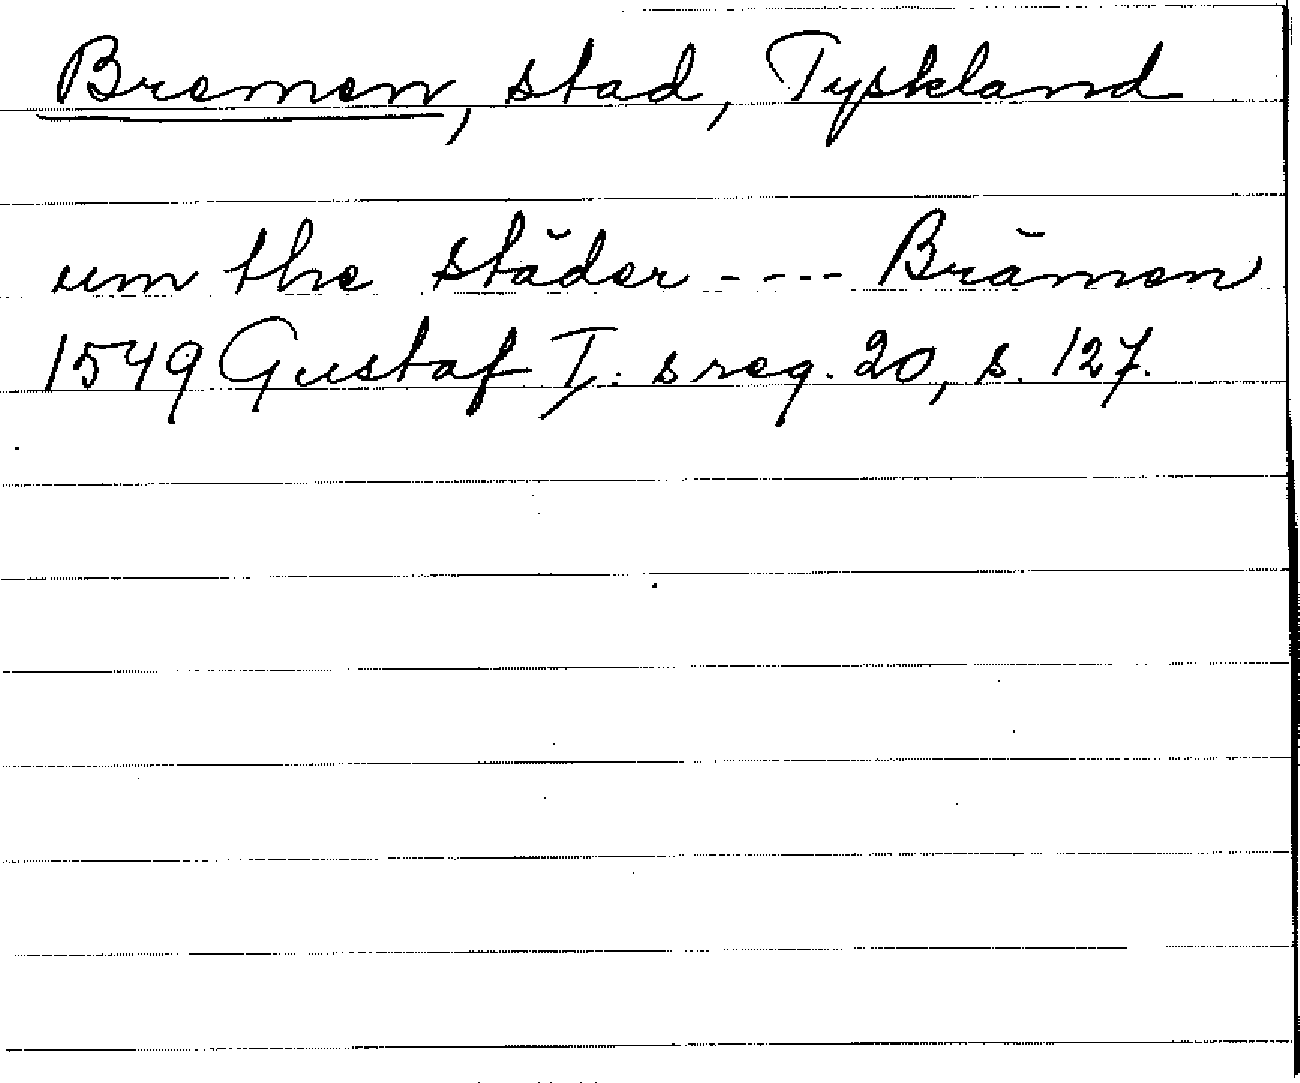 Bremen, stad, Tyskland
um the städer ---- Brämen
1549 Gustaf I: s reg. 20, s. 127.